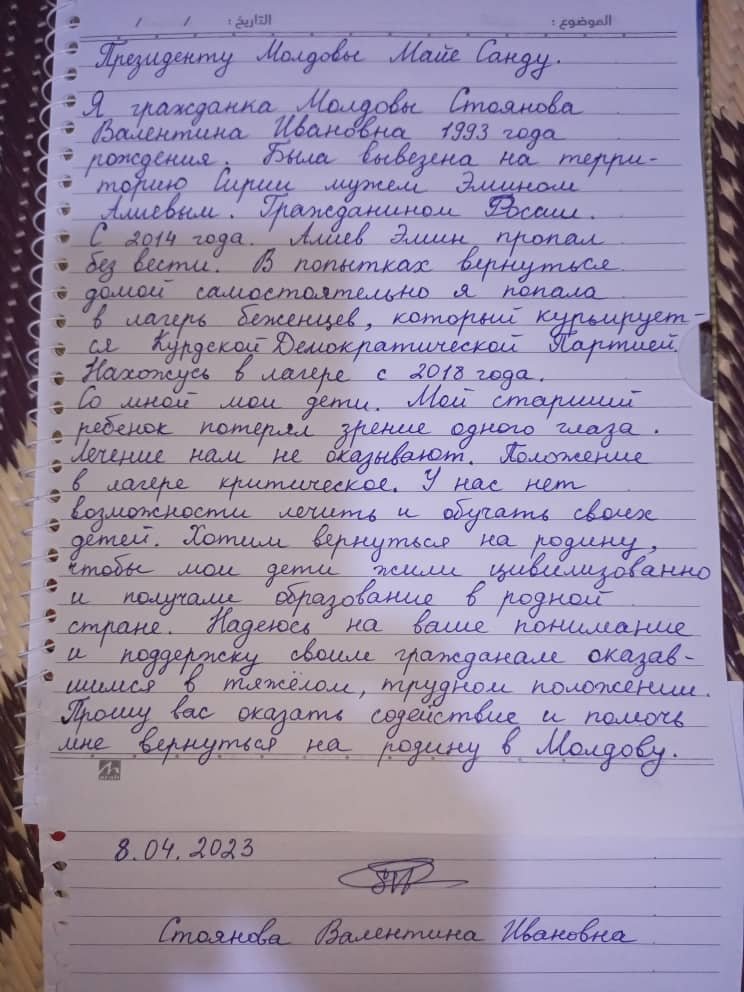 التاريخ : / /
الموضوع :
Президенту Молдовы Майе Санду.
Я гражданка Молдовы Стоянова
Валентина Ивановна 1993 года
рождения. Была вывезена на терри-
торию Сирии мужем Эмином
Алиевым. Гражданином России.
С 2014 года. Алиев Эмин пропал
без вести. В попытках вернуться
домой самостоятельно я попала
в лагерь беженцев, который курьирует-
ся Курдской Демократической Партией.
Нахожусь в лагере с 2018 года.
Со мной мои дети. Мой старший
ребенок потерял зрение одного глаза.
Лечение нам не оказывают. Положение
в лагере критическое. У нас нет
возможности лечить и обучать своих
детей. Хотим вернуться на родину,
чтобы мои дети жили цивилизованно
и получали образование в родной
стране. Надеюсь на ваше понимание
и поддержку своим гражданам оказав-
шимся в тяжёлом, трудном положении.
Прошу вас оказать содействие и помочь
мне вернуться на родину в Молдову.
8.04.2023
Стоянова Валентина Ивановна